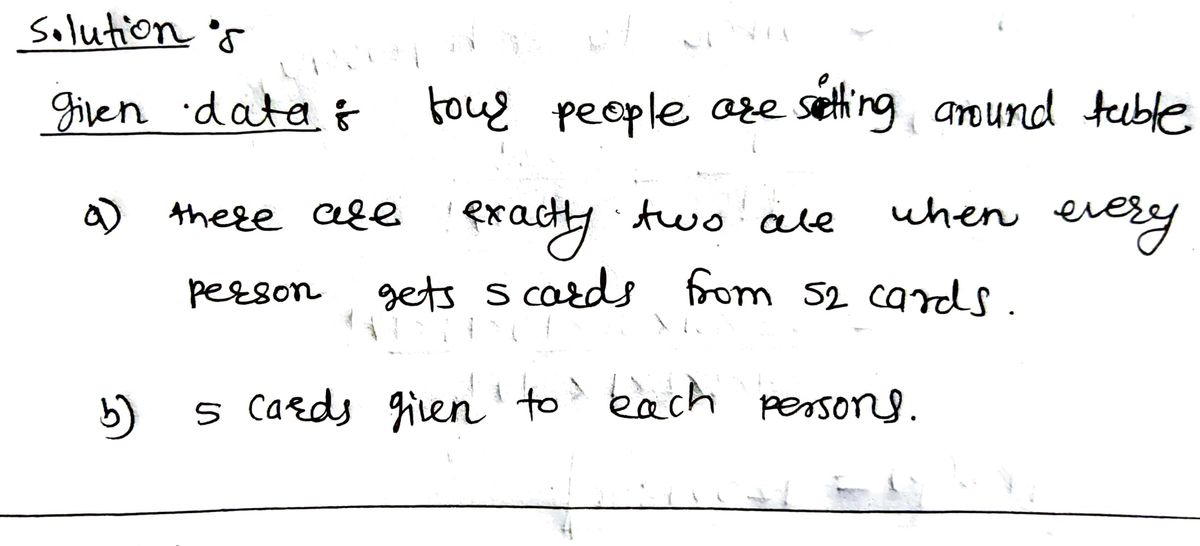 Solution :
given data : four people are sitting around table
a) there are exactly two ace when every
person gets 5 cards from 52 cards.
b) 5 cards given to each persons.